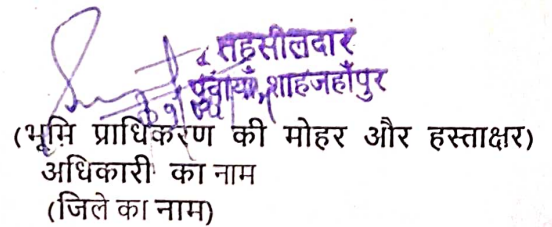 तहसीलदार
पुवायाँ, शाहजहाँपुर
(भूमि प्राधिकरण की मोहर और हस्ताक्षर)
अधिकारी का नाम
(जिले का नाम)